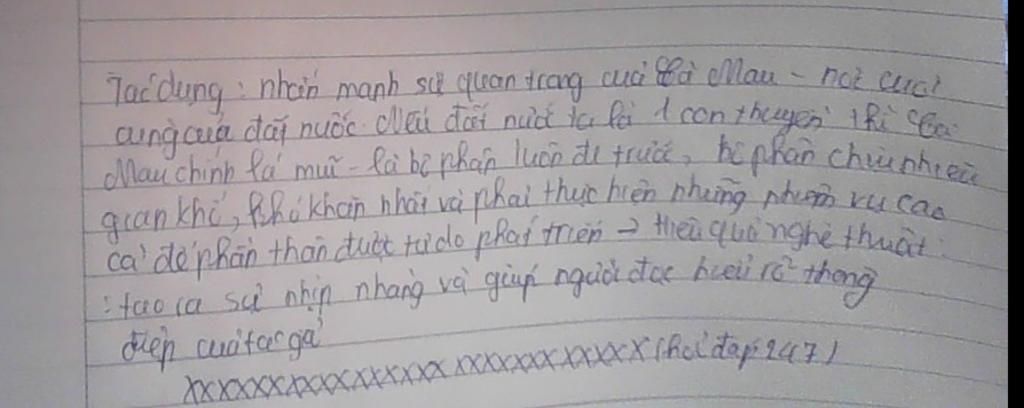 Tác dụng: nhấn mạnh sự quan trọng của Cà Mau - nơi cuối
cùng của đất nước. Nếu đất nước ta là 1 con thuyền thì Cà
Mau chính là mũi - là bộ phận luôn đi trước, bộ phận chịu nhiều
gian khổ, khó khăn nhất và phải thực hiện những nhiệm vụ cao
cả để phần thân được tự do phát triển → hiệu quả nghệ thuật:
: tạo ra sự nhịp nhàng và giúp người đọc hiểu rõ thông
điệp của tác giả
XXXXXXXXXXXXXXXXX XXXXXXXXXXXXX (hỏi đáp 247)